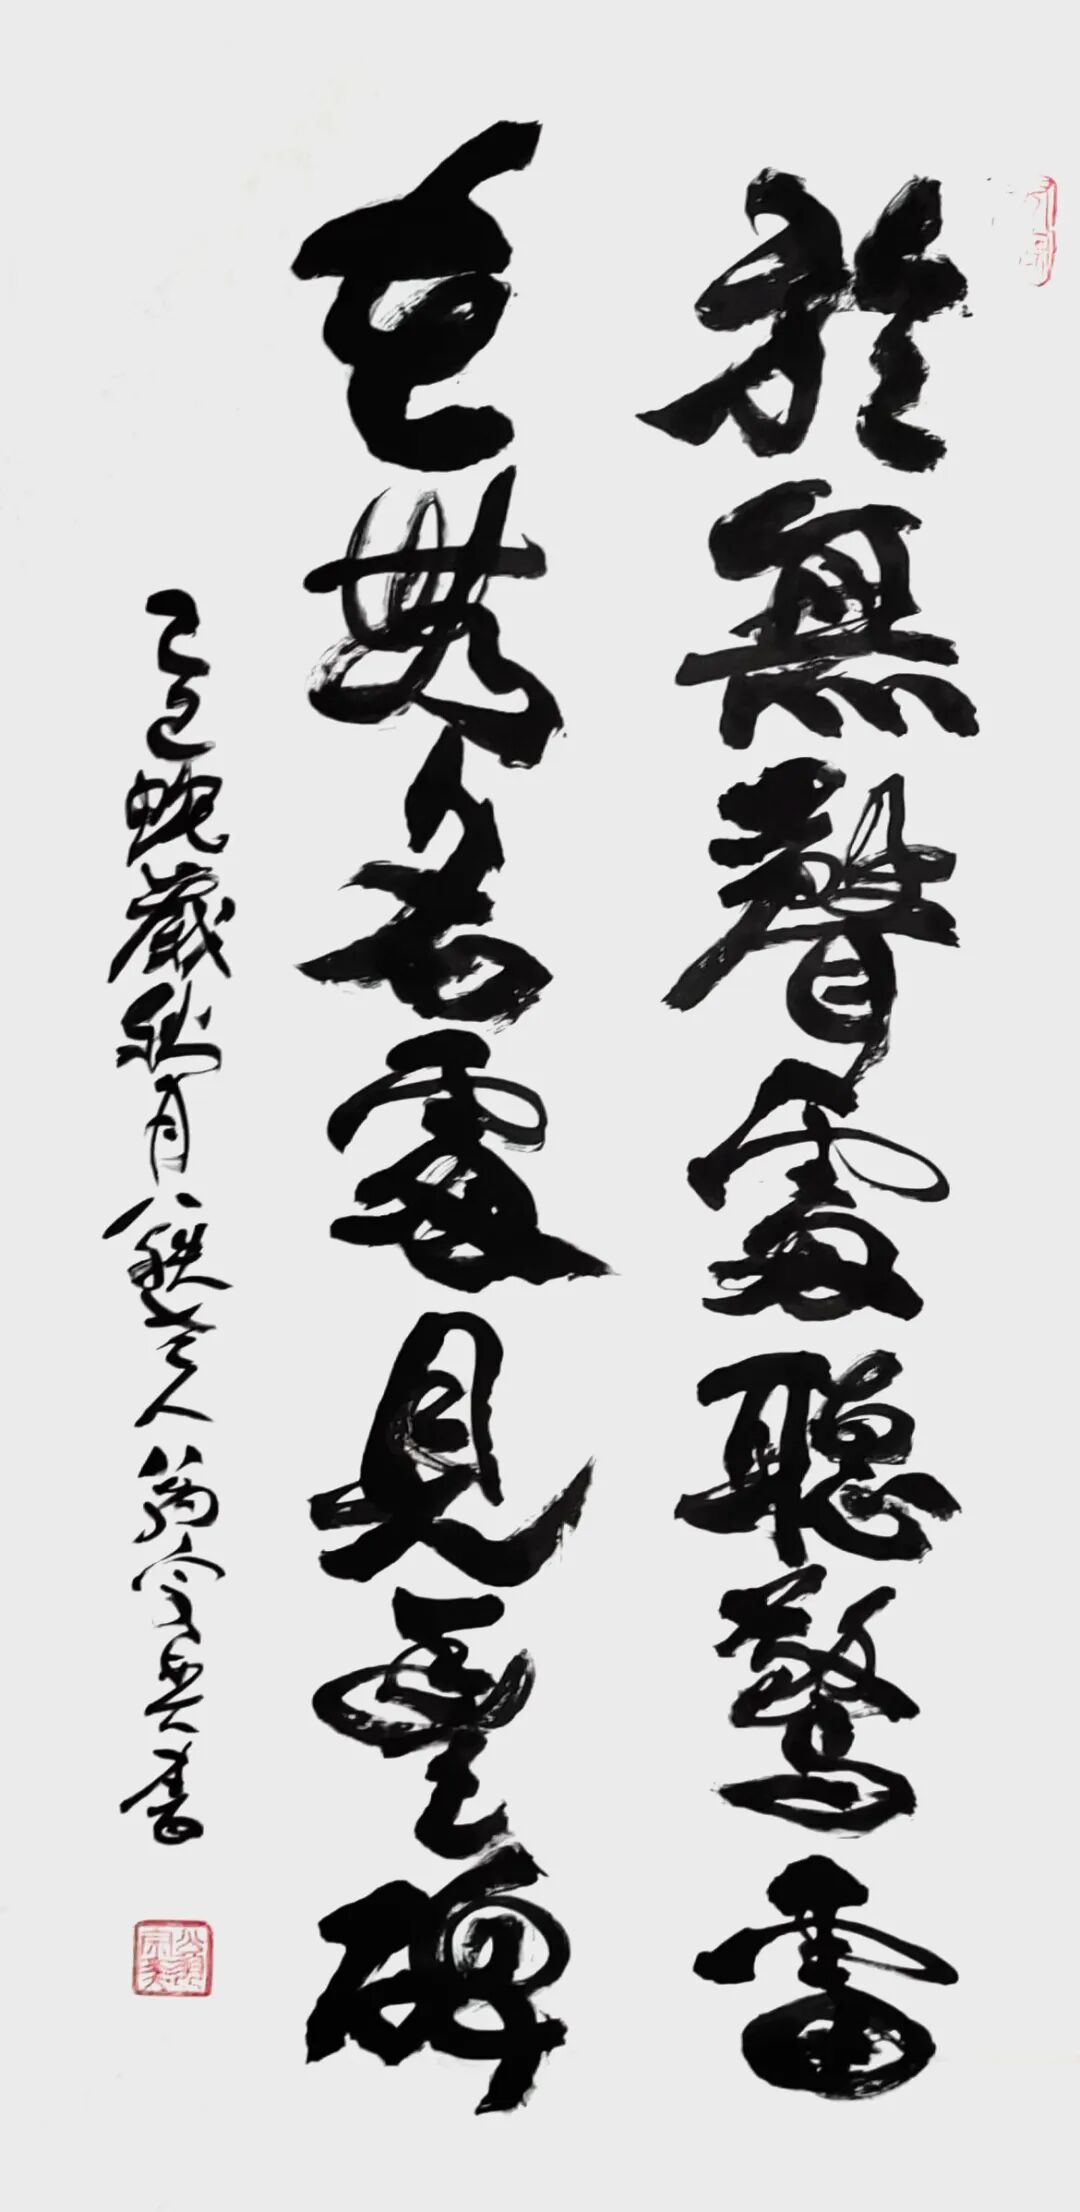 於無聲處聽驚雷
無名處見豐碑
乙巳蛇歲秋月八秩老人翁宗奥書